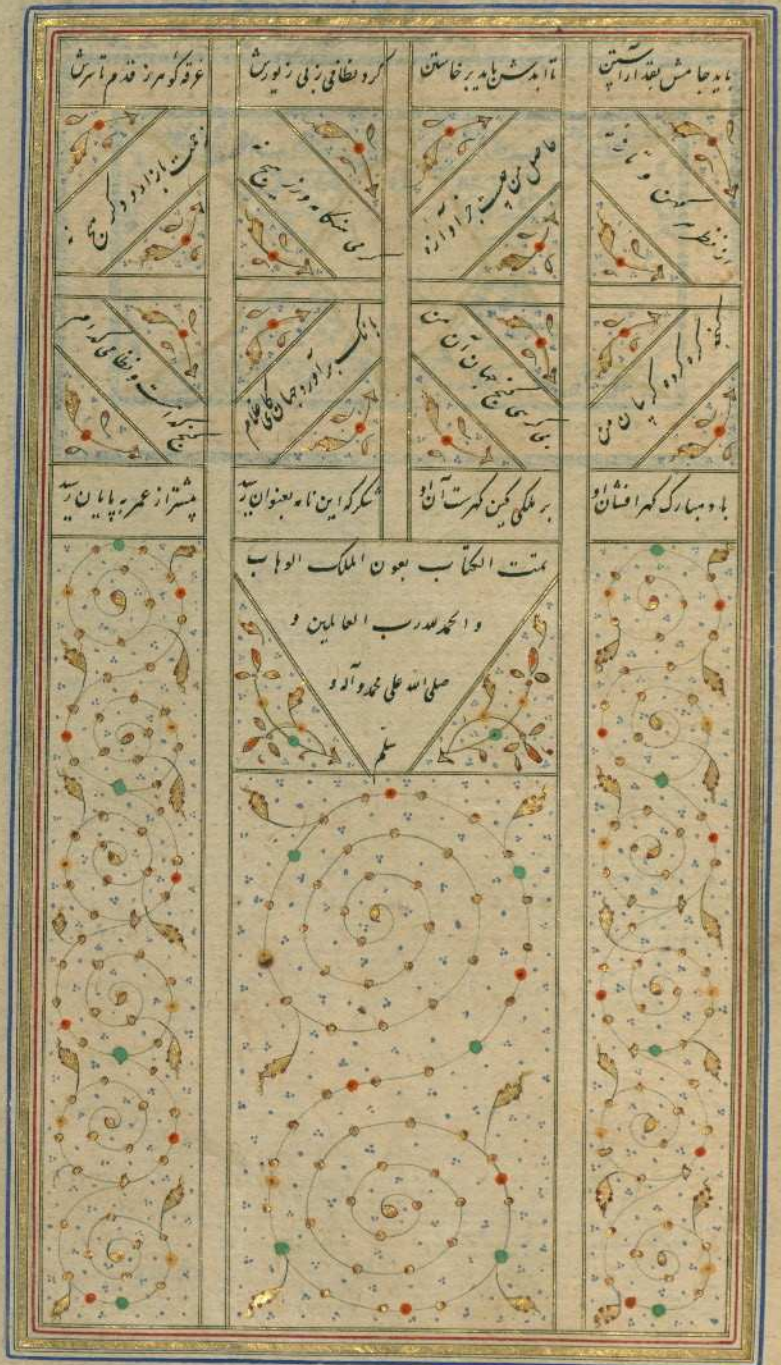 باید جامش بقد آراستن
تا ادبش باید برخاستن
کرد نظامی ز پی زیورش
غرقه گوهر ز قدم تا سرش
از نظر هر کهن و تازه
حاصل من چیست جز آوازه
گرمی هنگامه و زر هیچ نه
زحمت بازار و دگر هیچ نه
گنجه گره کرده گریبان من
بی گرهی گنج جهان آن من
بانگ برآورد جهان کای غلام
گنج کدامست و نظامی کدام
باد مبارک گهر افشان او
بر ملکی کین گهرست آن او
شکر که این نامه بعنوان رسید
پیشتر از عمر به پایان رسید
تمت الکتاب بعون الملک الوهاب
و الحمد لله رب العالمین و
صلی الله علی محمد و آله و
سلم